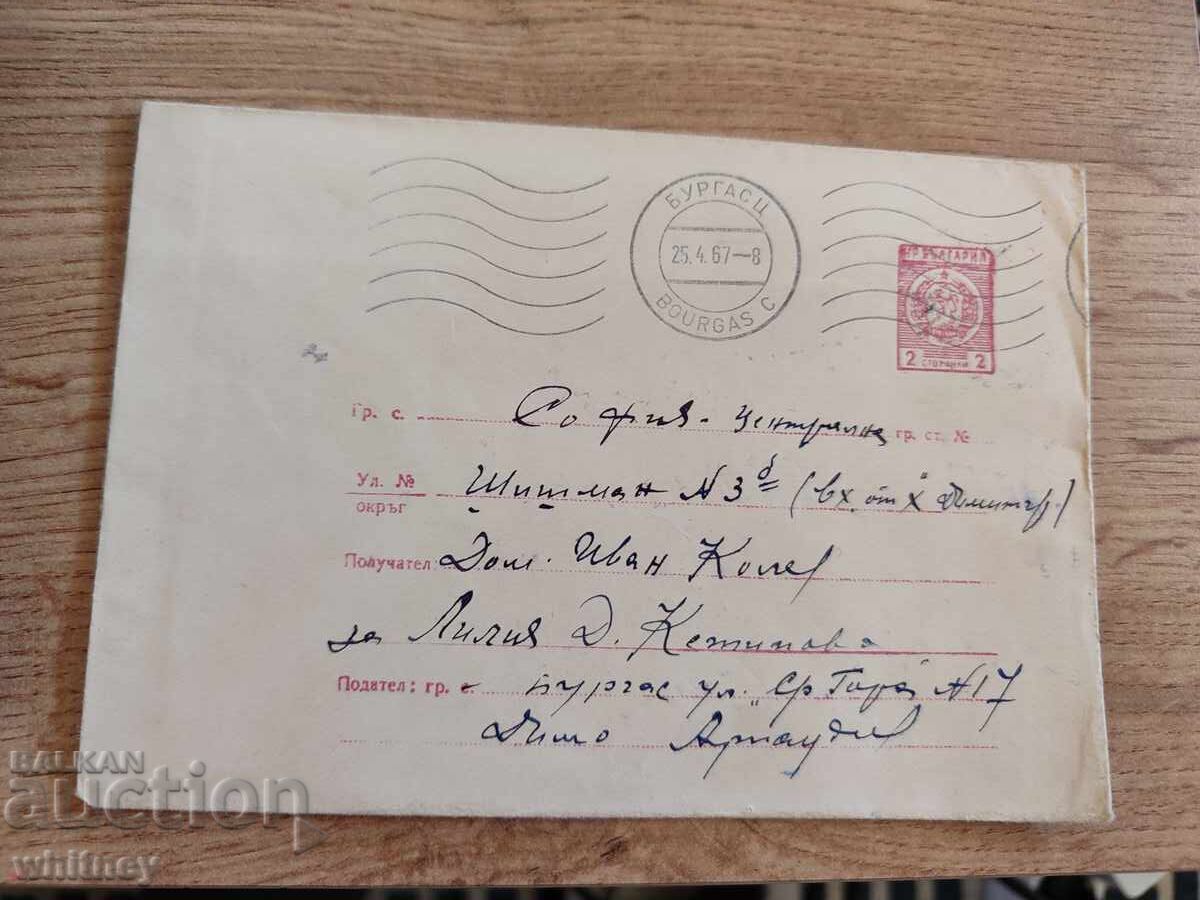 БУРГАС Ц
25.4.67-8
BOURGAS C
НР. БЪЛГАРИЯ
2 СТОТИНКИ 2
Гр. с. София - Централна гр. ст. №
Ул. № Шишман № 3 б (вх. от "Х Димитър")
окръг
Получател: Дом. Иван Колев
за Лилия Д.
Подател: гр. с. Бургас ул. "Ср Гора" № 17
Димо Арнаудов
BALKAN
auction
whitney